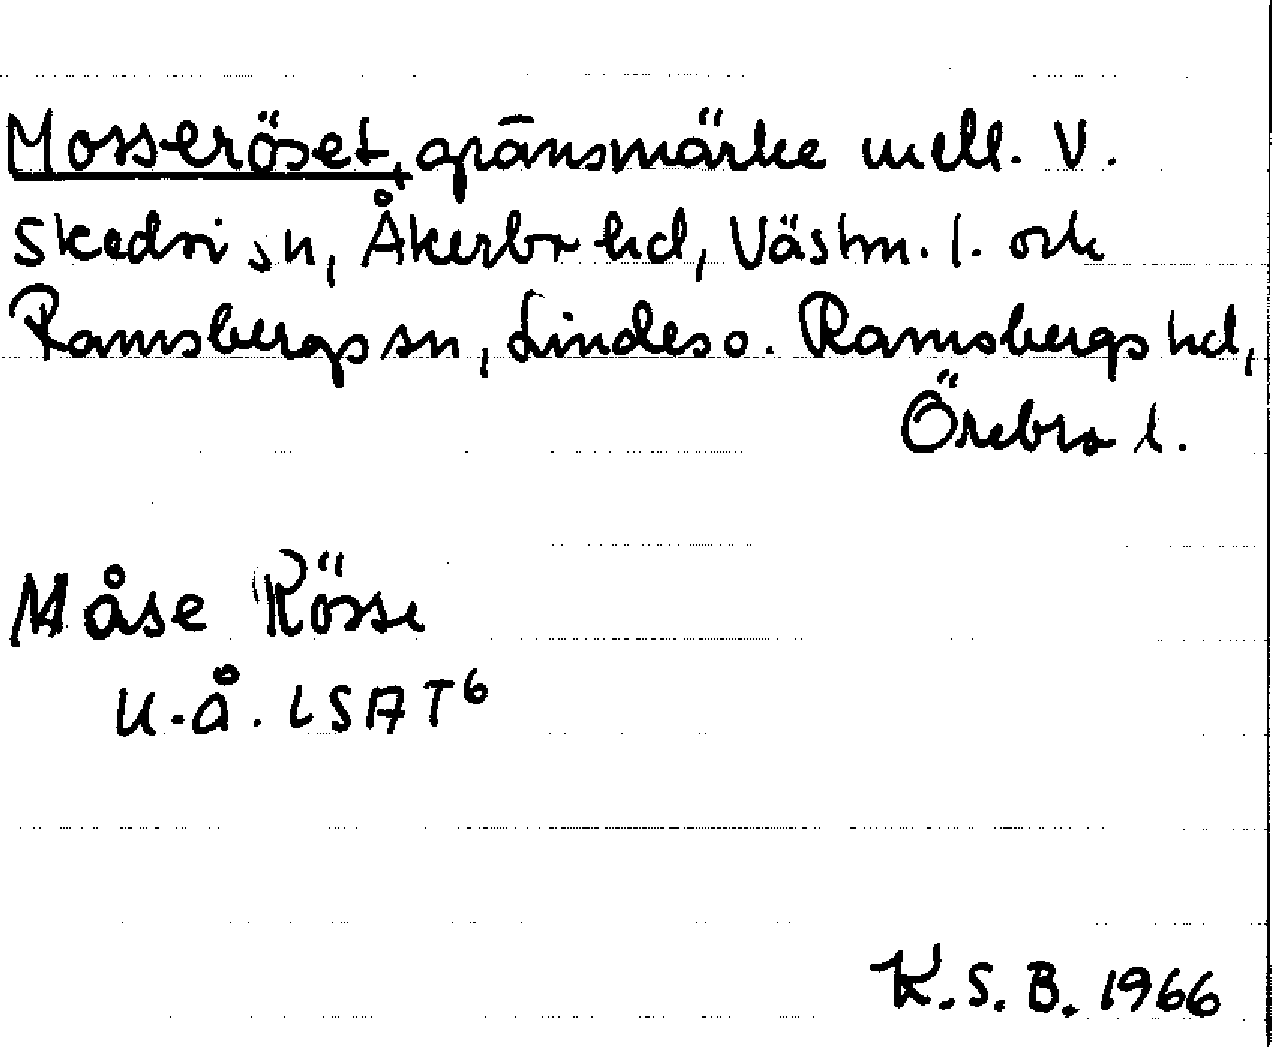 Mosseröset, gränsmärke mell. V.
Skedvi sn, Åkerbo hd, Västm. l. och
Ramsbergs sn, Lindes o. Ramsbergs hd,
Örebro l.
Måse Rösse
U.å. LSA T6
K.S.B. 1966